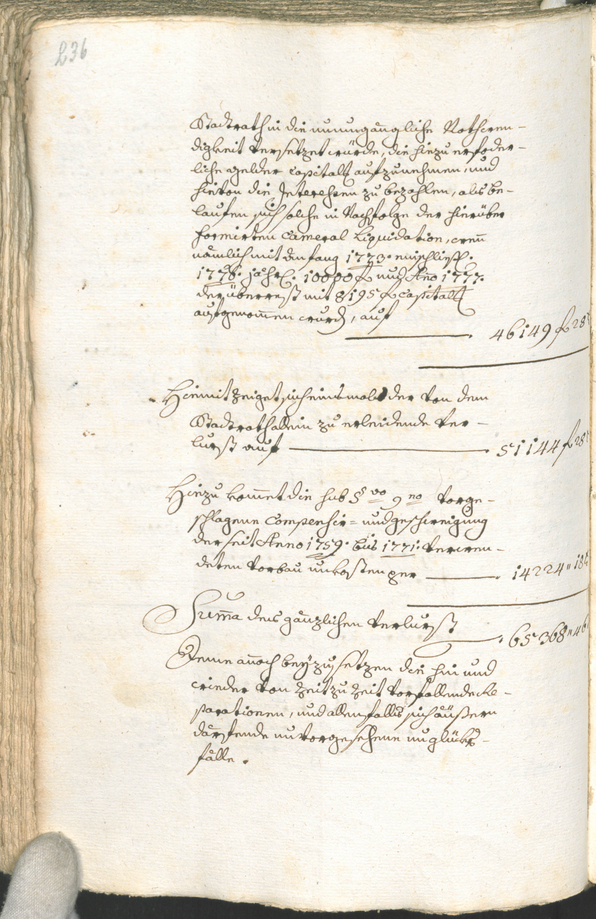 236
Stadtrath in die unumgängliche Nothwen-
digkeit versetzet wurde, die hiezu erforder-
liche gelder Capitall aufzunehmen, und
hievon die Interessen zu bezahlen, als be-
laufen sich solche in Nachfolge der hierüber
formirten Cameral Liquidation, wenn
nämlich mit anfang 1773. einschließ.
1776. jährl. 10000 f und Ano 1777.
der überrest mit 8195 f Capitall
aufgenommen wurd, auf
46149 f 28
Hiemit zeiget sich einsmals der von dem
Stadtrath allein zu erleidende Ver-
lurst auf 51144 f 28
Hiezu kommet die sub § vo 9 no vorge-
schlagene Compensir- und geschweigung
der seit Anno 1759. bis 1771. verwen-
deten Vorbau unkosten per 14224 " 18
Summa des gänzlichen Verlurst 65368 " 46
Deme annoch beyzusetzen die hin und
wieder von Zeit zu Zeit vorfallende Re-
parationen, und allenfalls sich äußern
darfende unvorgesehene unglücks-
fälle.